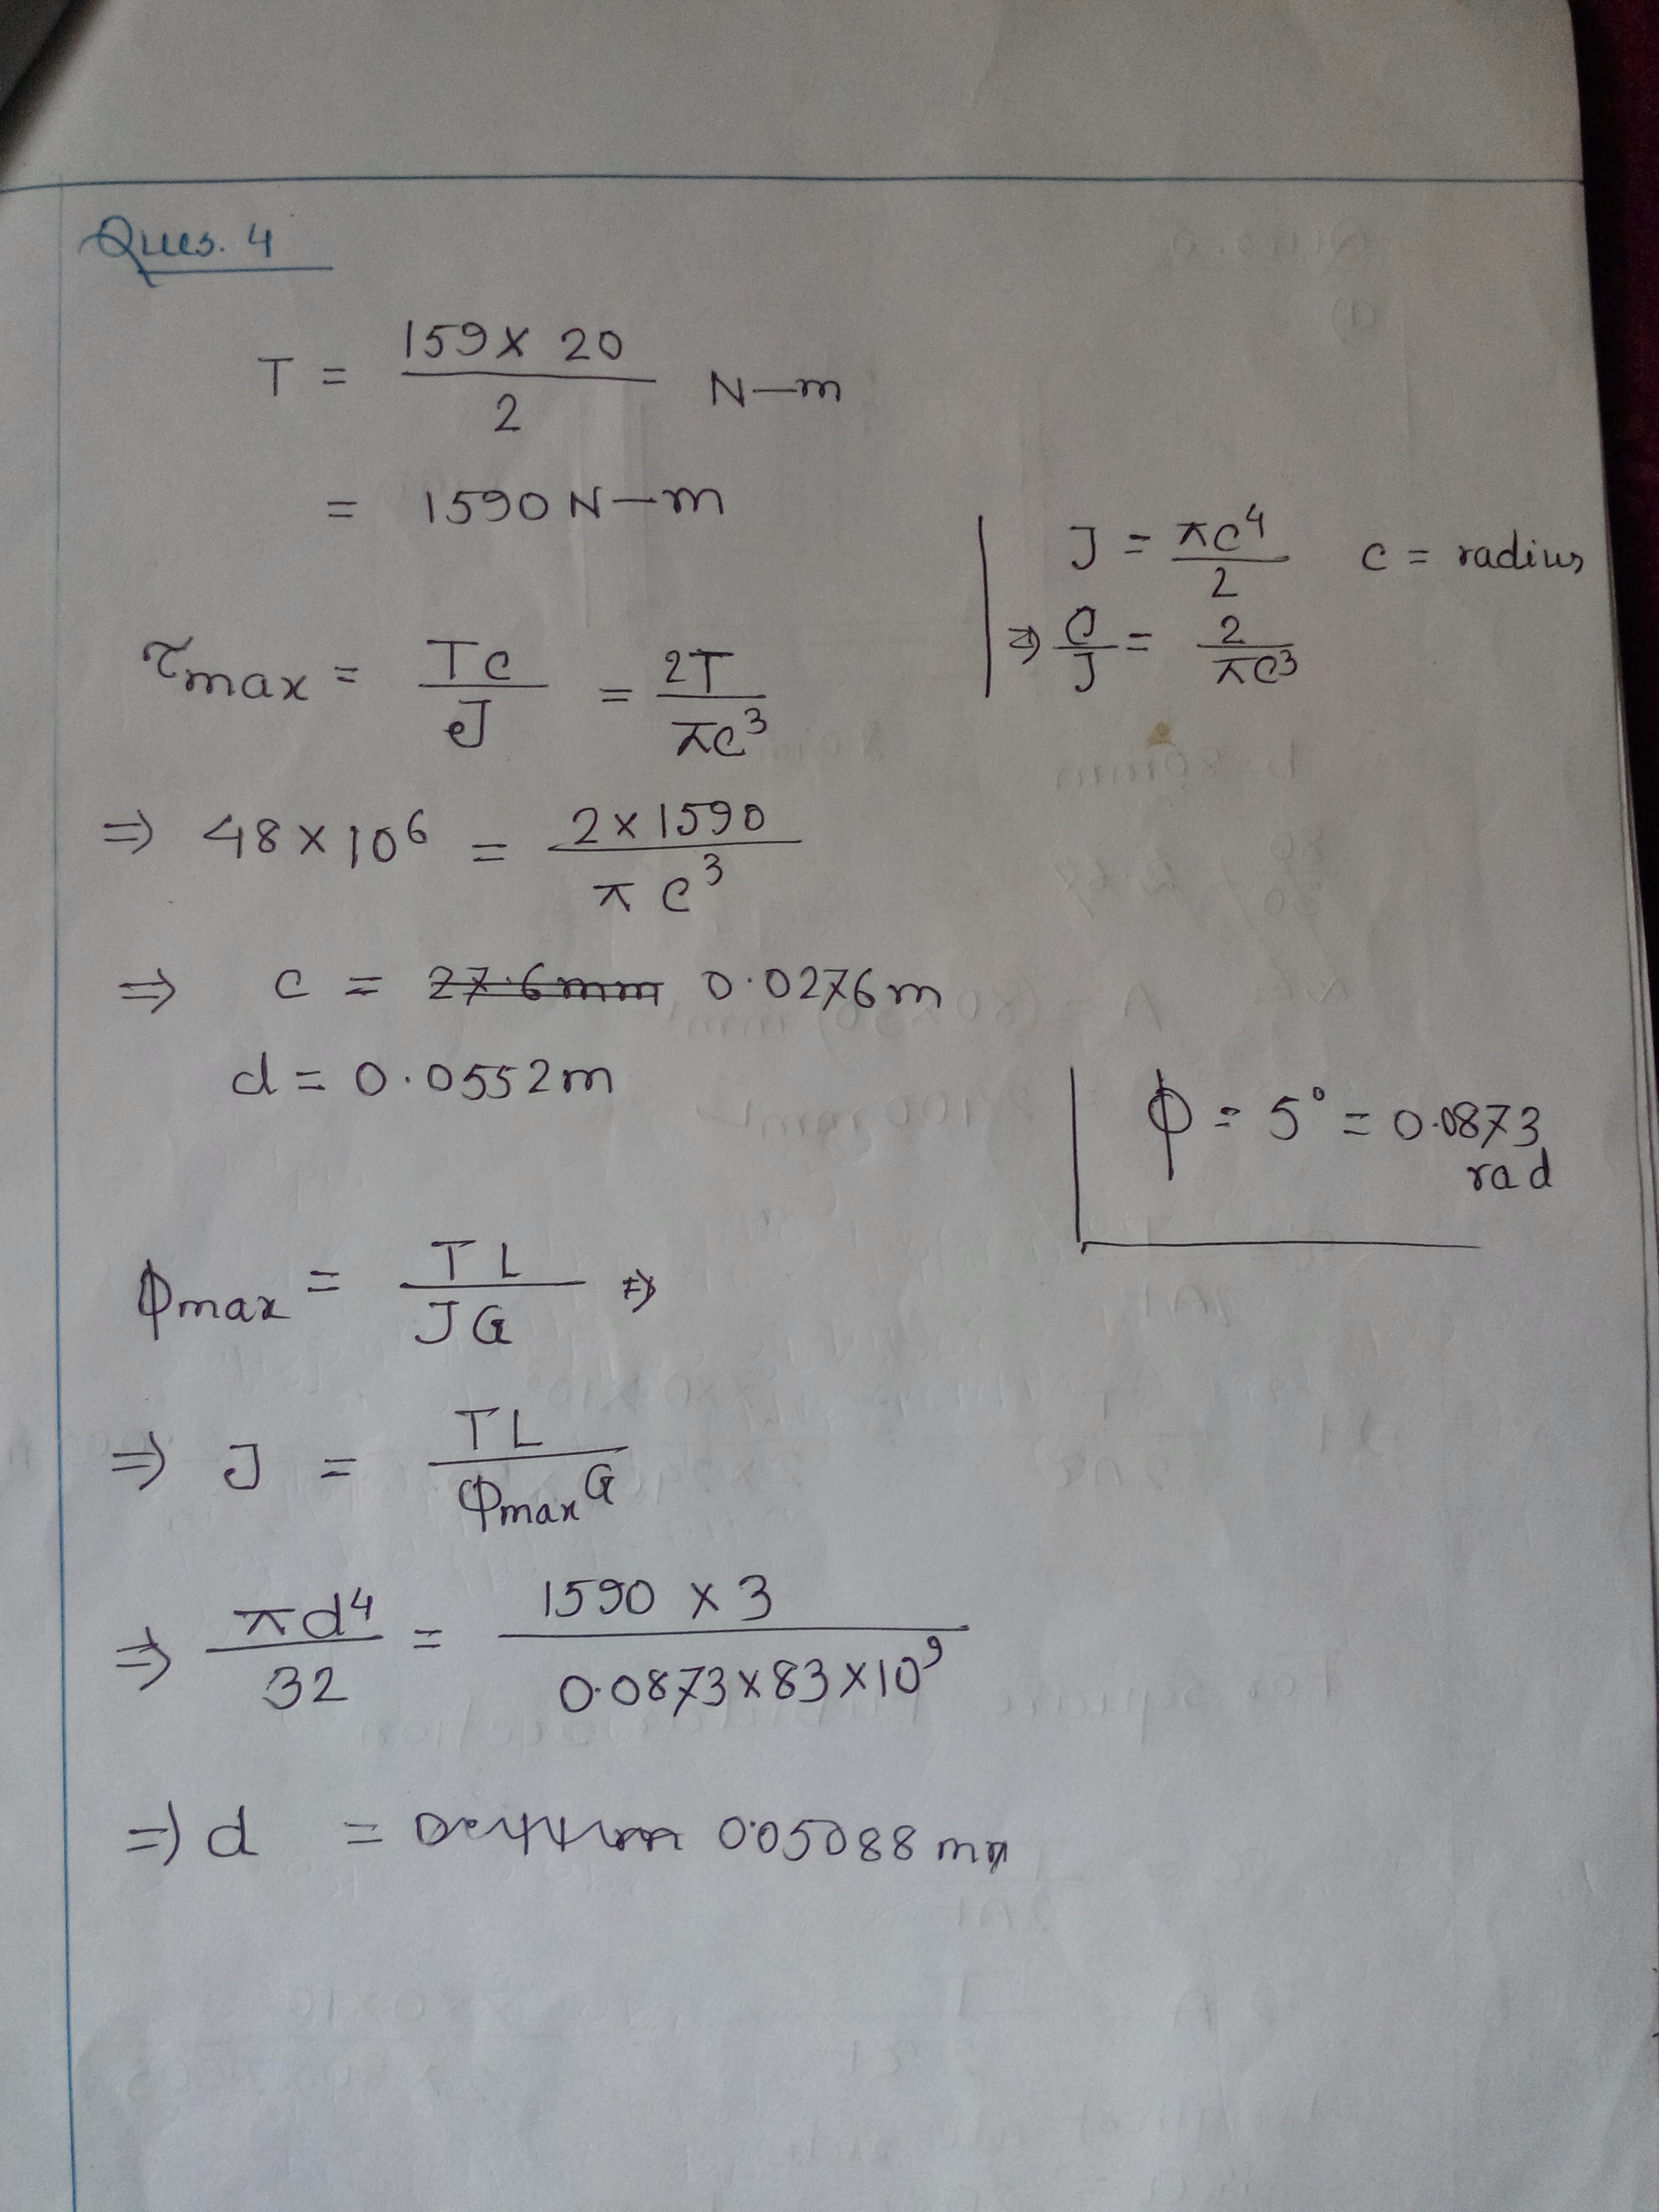 Ques. 4
T = 159 × 20 / 2 N–m
= 1590 N–m
J = πc⁴ / 2 c = radius
⇒ C/J = 2 / πc³
τmax = TC / J = 2T / πc³
⇒ 48 × 10⁶ = 2 × 1590 / π c³
⇒ c = 27.6mm 0.0276m
d = 0.0552m
ϕ = 5° = 0.0873
rad
ϕmax = TL / JG ⇒
⇒ J = TL / ϕmax G
⇒ πd⁴ / 32 = 1590 × 3 / 0.0873 × 83 × 10⁹
⇒ d = 0.05088 m